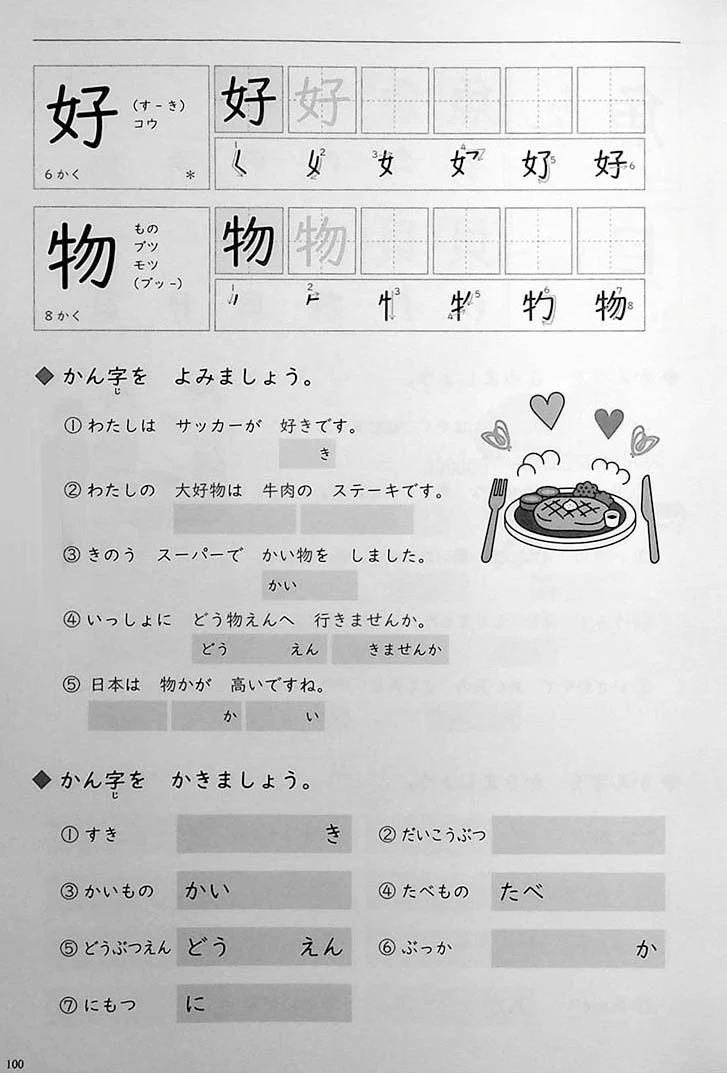 好 (す-き) 好 好
コウ
6かく *
1 2 3 4 5 6
く 女 女 好 好 好
物 もの 物 物
ブツ
モツ
(ブッ-)
8かく
1 2 3 4 5 6 7 8
物
◆ かん字を よみましょう。
じ
① わたしは サッカーが 好きです。
き
② わたしの 大好物は 牛肉の ステーキです。
③ きのう スーパーで かい物を しました。
かい
④ いっしょに どう物えんへ 行きませんか。
どう えん きませんか
⑤ 日本は 物かが 高いですね。
か い
◆ かん字を かきましょう。
じ
① すき き ② だいこうぶつ
③ かいもの かい ④ たべもの たべ
⑤ どうぶつえん どう えん ⑥ ぶっか か
⑦ にもつ に
100